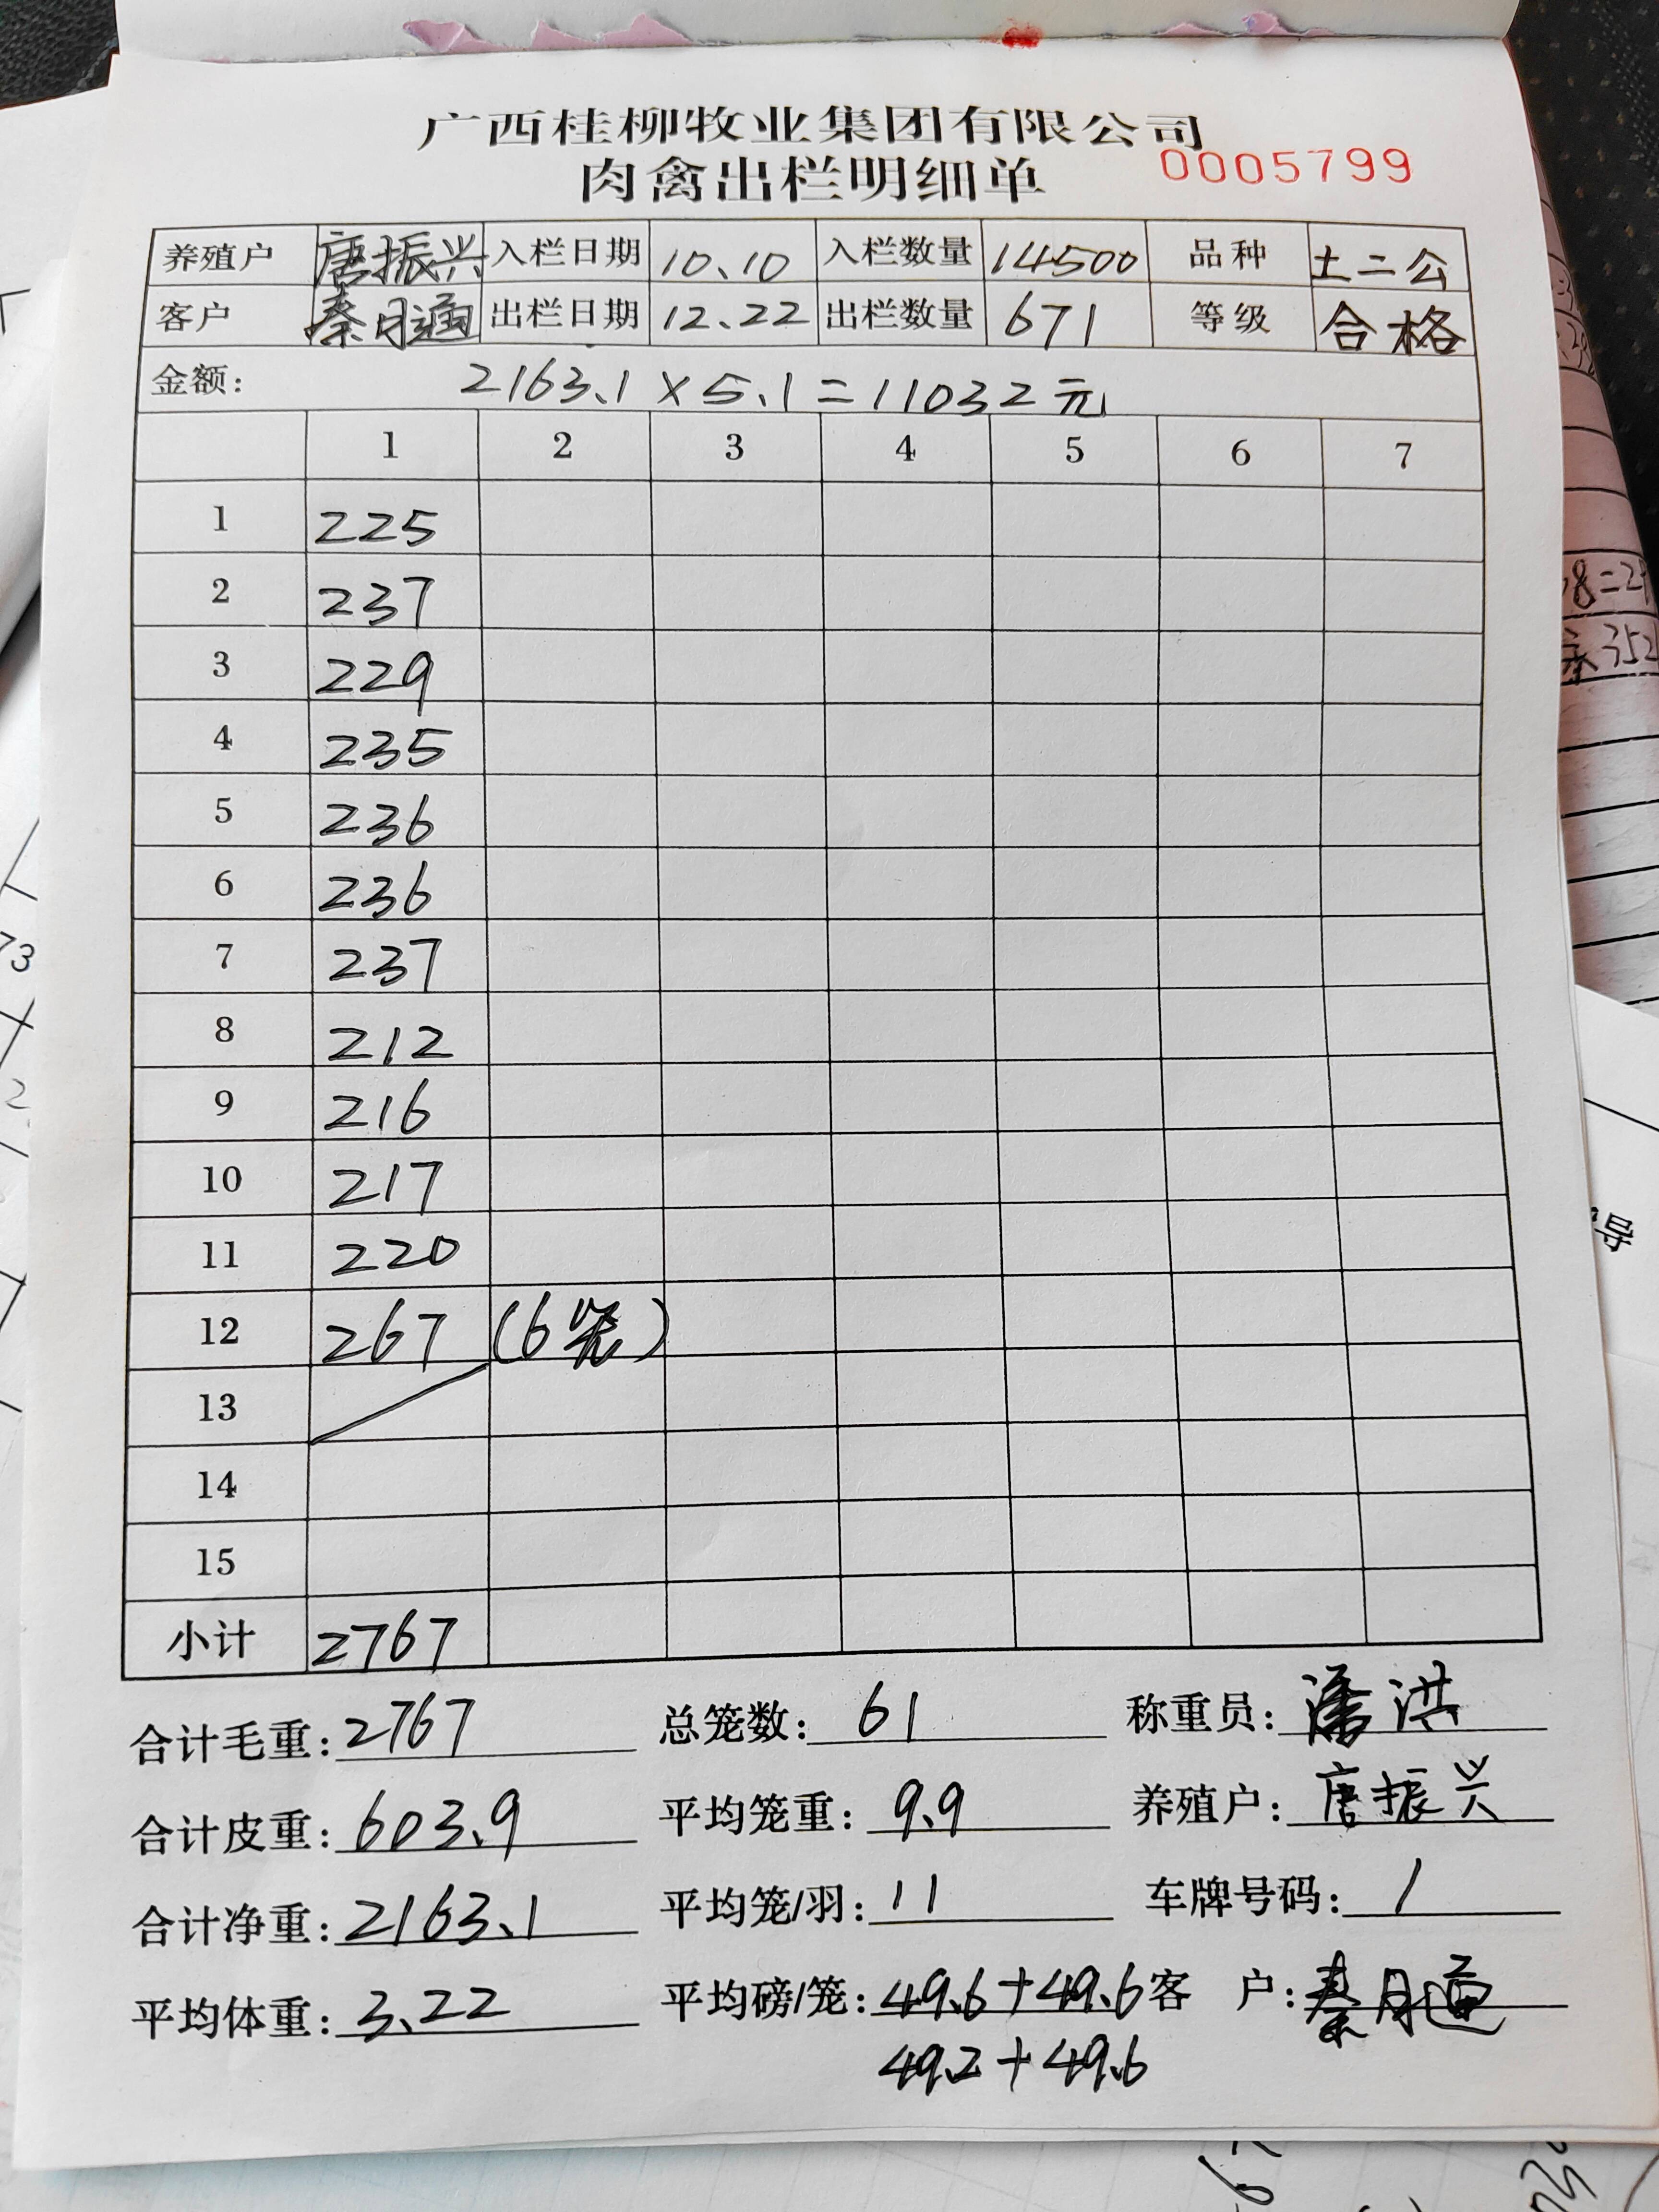 广西桂柳牧业集团有限公司
肉禽出栏明细单 0005799
养殖户 唐振兴 入栏日期 10.10 入栏数量 14500 品种 土二公
客户 秦月通 出栏日期 12.22 出栏数量 671 等级 合格
金额: 2163.1×5.1=11032元
1 2 3 4 5 6 7
1 225
2 237
3 229
4 235
5 236
6 236
7 237
8 212
9 216
10 217
11 220
12 267 (6笼)
13
14
15
小计 2767
合计毛重: 2767 总笼数: 61 称重员: 潘洪
合计皮重: 603.9 平均笼重: 9.9 养殖户: 唐振兴
合计净重: 2163.1 平均笼/羽: 11 车牌号码: /
平均体重: 3.22 平均磅/笼: 49.6+49.6 客户: 秦月通
49.2+49.6